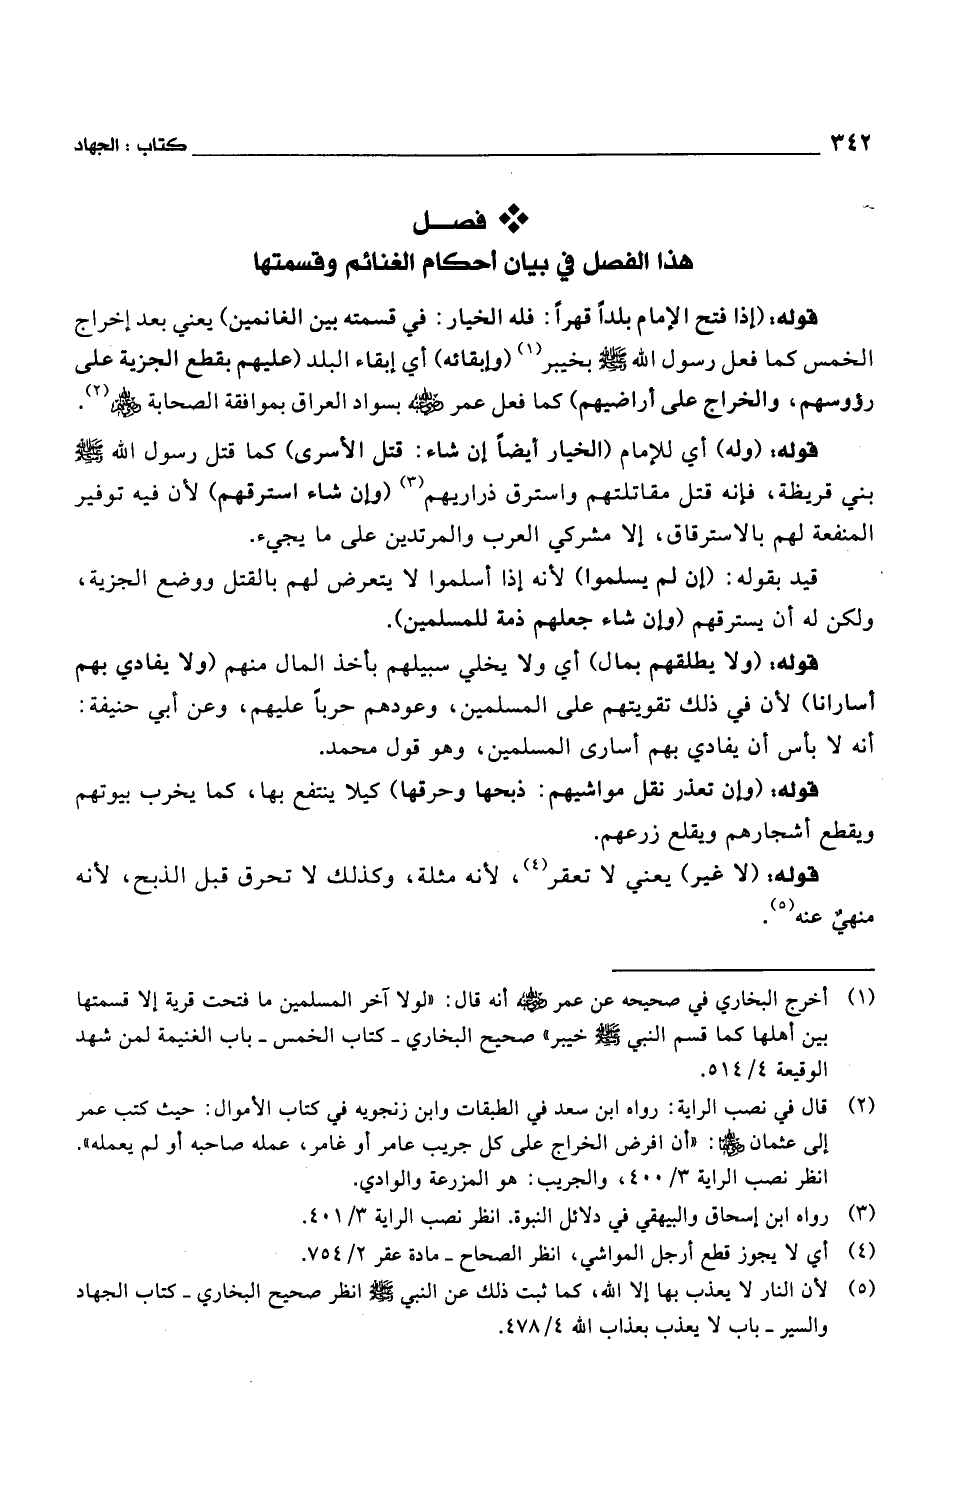 ٣٤٢ كتاب : الجهاد
❖ فصـــل
هذا الفصل في بيان أحكام الغنائم وقسمتها
قوله: (إذا فتح الإمام بلداً قهراً: فله الخيار: في قسمته بين الغانمين) يعني بعد إخراج
الخمس كما فعل رسول الله ﷺ بخيبر(١) (وإبقائه) أي إبقاء البلد (عليهم بقطع الجزية على
رؤوسهم، والخراج على أراضيهم) كما فعل عمر رضي الله عنه بسواد العراق بموافقة الصحابة رضي الله عنهم(٢).
قوله: (وله) أي للإمام (الخيار أيضاً إن شاء: قتل الأسرى) كما قتل رسول الله ﷺ
بني قريظة، فإنه قتل مقاتلتهم واسترق ذراريهم(٣) (وإن شاء استرقهم) لأن فيه توفير
المنفعة لهم بالاسترقاق، إلا مشركي العرب والمرتدين على ما يجيء.
قيد بقوله: (إن لم يسلموا) لأنه إذا أسلموا لا يتعرض لهم بالقتل ووضع الجزية،
ولكن له أن يسترقهم (وإن شاء جعلهم ذمة للمسلمين).
قوله: (ولا يطلقهم بمال) أي ولا يخلي سبيلهم بأخذ المال منهم (ولا يفادي بهم
أسارانا) لأن في ذلك تقويتهم على المسلمين، وعودهم حرباً عليهم، وعن أبي حنيفة:
أنه لا بأس أن يفادي بهم أسارى المسلمين، وهو قول محمد.
قوله: (وإن تعذر نقل مواشيهم: ذبحها وحرقها) كيلا ينتفع بها، كما يخرب بيوتهم
ويقطع أشجارهم ويقلع زرعهم.
قوله: (لا غير) يعني لا تعقر(٤)، لأنه مثلة، وكذلك لا تحرق قبل الذبح، لأنه
منهيٌ عنه(٥).
(١) أخرج البخاري في صحيحه عن عمر رضي الله عنه أنه قال: «لولا آخر المسلمين ما فتحت قرية إلا قسمتها
بين أهلها كما قسم النبي ﷺ خيبر» صحيح البخاري ـ كتاب الخمس ـ باب الغنيمة لمن شهد
الوقيعة ٤/ ٥١٤.
(٢) قال في نصب الراية: رواه ابن سعد في الطبقات وابن زنجويه في كتاب الأموال: حيث كتب عمر
إلى عثمان رضي الله عنهما: «أن افرض الخراج على كل جريب عامر أو غامر، عمله صاحبه أو لم يعمله».
انظر نصب الراية ٣/ ٤٠٠، والجريب: هو المزرعة والوادي.
(٣) رواه ابن إسحاق والبيهقي في دلائل النبوة. انظر نصب الراية ٣/ ٤٠١.
(٤) أي لا يجوز قطع أرجل المواشي، انظر الصحاح ـ مادة عقر ٢/ ٧٥٤.
(٥) لأن النار لا يعذب بها إلا الله، كما ثبت ذلك عن النبي ﷺ انظر صحيح البخاري ـ كتاب الجهاد
والسير ـ باب لا يعذب بعذاب الله ٤/ ٤٧٨.